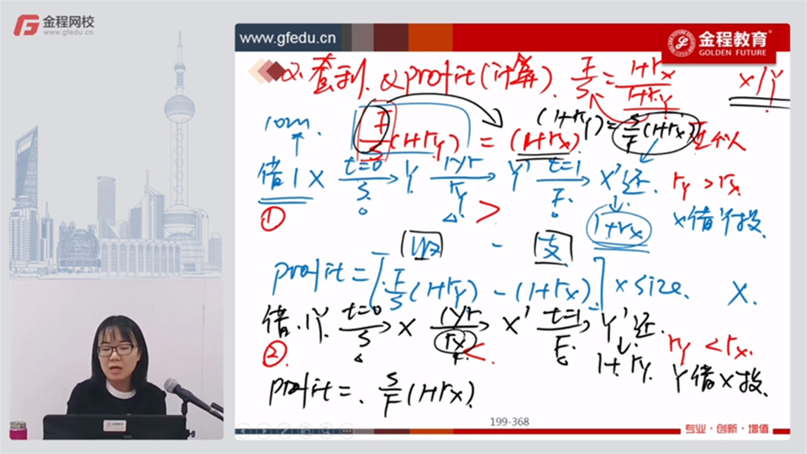 金程网校
www.gfedu.cn
www.gfedu.cn
金程教育
GOLDEN FUTURE
2. 套利 & profit (计算) F/S = (1+rx)/(1+ry)
x/y
10m.
(1+ry) = S/F (1+rx)
F/S (1+ry) = (1+rx)
借 1 X t=0 S Y 1yr ry Y' t=1 F X' 还.
ry > rx.
① > 1+rx
x借Y投.
收 - 支
profit = [F/S (1+ry) - (1+rx)] × size. X.
借.1Y t=0 S X 1yr rx X' t=1 F Y' 还.
② < 1+ry.
ry < rx.
Y借X投.
profit = S/F (1+rx)
199-368
专业·创新·增值